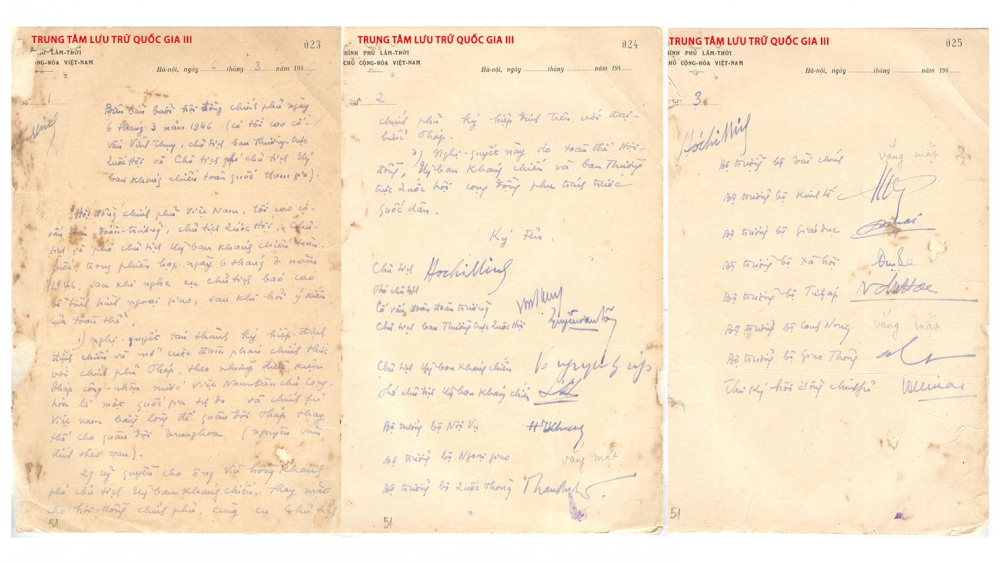 TRUNG TÂM LƯU TRỮ QUỐC GIA III
023
PHỦ LÂM-THỜI
CỘNG-HÒA VIỆT-NAM
Hà-nội, ngày 6 tháng 3 năm 194
Số 1
Biên bản buổi hội đồng chính phủ ngày
6 tháng 3 năm 1946 (có tối cao cố-
vấn Vĩnh Thụy, chủ tịch ban Thường-trực
Quốc Hội và Chủ tịch phó chủ tịch Uỷ
ban kháng chiến toàn quốc tham gia).
Hội đồng chính phủ Việt Nam, tối cao cố-
vấn đoàn-trưởng, chủ tịch Quốc Hội, Chủ-
tịch và phó chủ tịch Uỷ ban kháng chiến toàn-
quốc, trong phiên họp ngày 6 tháng 3 năm
1946, sau khi nghe cụ chủ tịch báo cáo
về tình hình ngoại giao, sau khi hỏi ý kiến
của toàn thể,
1) nghị-quyết tán thành ký hiệp định
đình chiến và mở cuộc đàm phán chính thức
với chính phủ Pháp, theo những điều kiện
Pháp công-nhận nước Việt Nam Dân chủ Cộng-
hòa là một quốc gia tự do và chính phủ
Việt nam bằng lòng để quân đội Pháp thay
thế cho quân đội Trung hoa (nguyên văn
đính theo sau).
2) uỷ quyền cho ông Vũ Hồng Khanh
phó chủ tịch Uỷ ban kháng chiến, thay mặt
cho hội-đồng chính phủ, cùng cụ Chủ tịch
51
TRUNG TÂM LƯU TRỮ QUỐC GIA III
024
CHÍNH PHỦ LÂM-THỜI
CHỦ CỘNG-HÒA VIỆT-NAM
Hà-nội, ngày tháng năm 194
Số 2
chính phủ ký hiệp định trên với đại-
biểu Pháp.
3) Nghị-quyết này do toàn thể Hội-
đồng, Uỷ ban kháng chiến và ban Thường
trực Quốc hội cộng đồng phụ trách trước
quốc dân.
Ký tên,
Chủ tịch Hochiminh
Phó chủ tịch
Cố vấn đoàn đoàn trưởng
Chủ tịch ban Thường trực Quốc Hội
Chủ tịch Uỷ ban kháng chiến Vo nguyen giap
Phó chủ tịch Uỷ ban kháng chiến
Bộ trưởng bộ Nội Vụ
Bộ trưởng bộ Ngoại giao vắng mặt
Bộ trưởng bộ Quốc Phòng
51
TRUNG TÂM LƯU TRỮ QUỐC GIA III
025
CHÍNH PHỦ LÂM-THỜI
CHỦ CỘNG-HÒA VIỆT-NAM
Hà-nội, ngày tháng năm 194
Số 3
Hochiminh
Bộ trưởng bộ Tài chính vắng mặt
Bộ trưởng bộ Kinh tế
Bộ trưởng bộ Giáo dục
Bộ trưởng bộ Xã hội
Bộ trưởng bộ Tư pháp
Bộ trưởng bộ Canh Nông vắng mặt
Bộ trưởng bộ Giao Thông
Thư ký hội đồng chính phủ
51